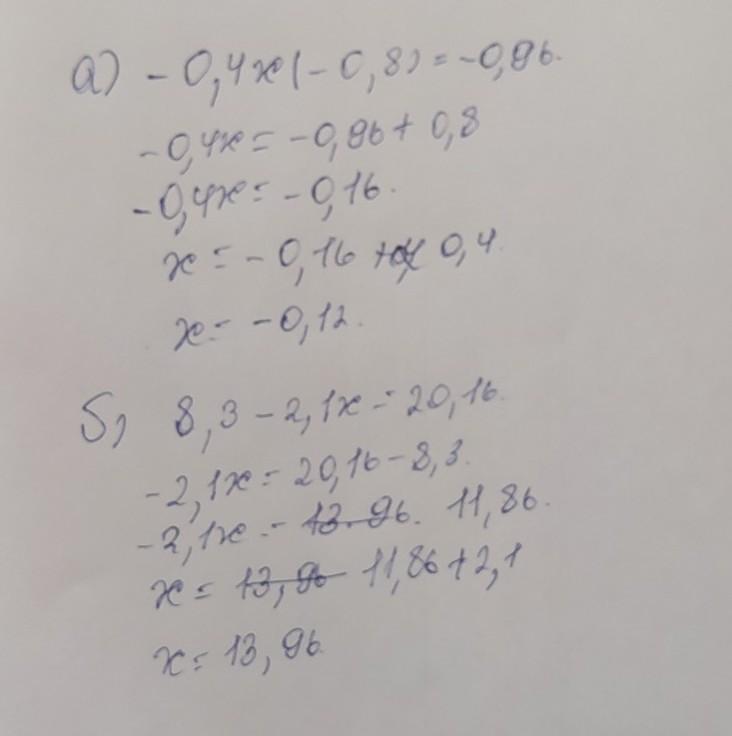 а) -0,4x(-0,8) = -0,96.
-0,4x = -0,96 + 0,8
-0,4x = -0,16.
x = -0,16 + 0,4.
x = -0,12.
б) 8,3 - 2,1x = 20,16.
-2,1x = 20,16 - 8,3.
-2,1x = 13.96. 11,86.
x = 13,96 11,86 + 2,1
x = 13,96